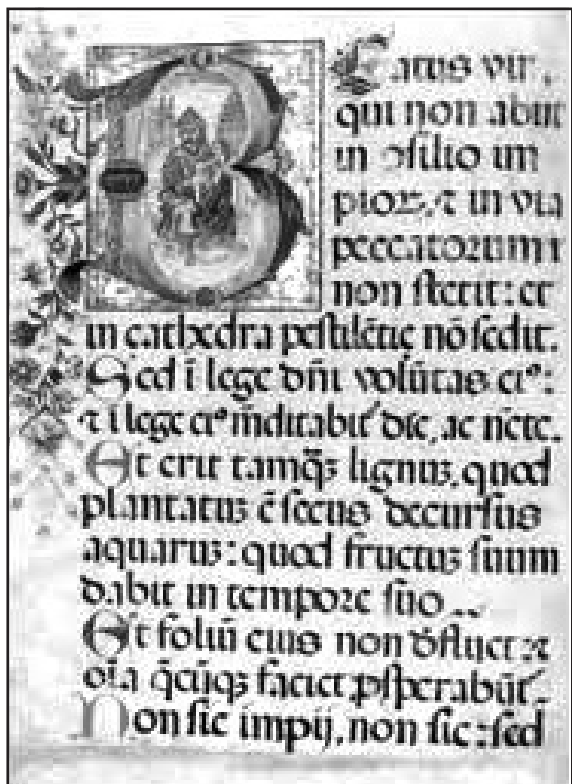 Beatus vir,
qui non abiit
in ↄsilio im
pioꝝ, ⁊ in via
peccatorum
non stetit: et
in cathedra pestilētię nō sedit.
Sed ī lege dn̄i volūtas eiꝰ:
⁊ ī lege eiꝰ m̄ditabit᷑ die, ac n̄cte.
Et erit tamq̄ꝫ lignuꝫ, quod
plantatuꝫ ē secus decursus
aquaruꝫ: quod fructuꝫ suum
dabit in tempore suo
Et foliū eius non d̄fluet: ⁊
oīa q̄cūqꝫ faciet ꝓsꝑabūt᷑.
Non sic impij, non sic: sed